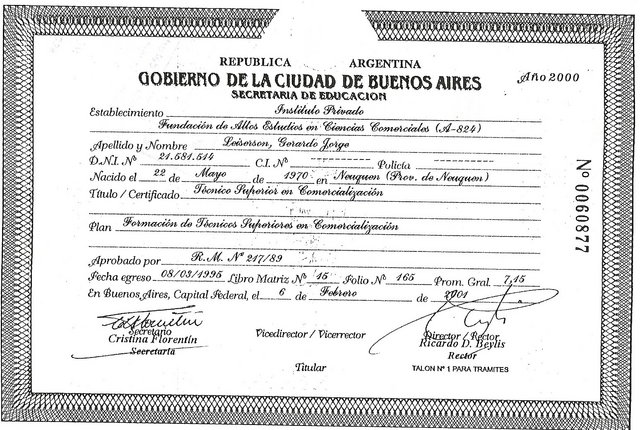 REPUBLICA ARGENTINA
GOBIERNO DE LA CIUDAD DE BUENOS AIRES
Año 2000
SECRETARIA DE EDUCACION
Establecimiento Instituto Privado
Fundación de Altos Estudios en Ciencias Comerciales (A-824)
Apellido y Nombre Leiserson, Gerardo Jorge
D.N.I. Nº 21.581.514 C.I. Nº ---------- Policía ----------
Nacido el 22 de Mayo de 1970 en Neuquen (Prov. de Neuquen)
Título / Certificado Técnico Superior en Comercialización
Plan Formación de Técnicos Superiores en Comercialización
Aprobado por R.M. Nº 217/89
Fecha egreso 08/03/1995 Libro Matriz Nº 15 Folio Nº 165 Prom. Gral. 7,15
En Buenos Aires, Capital Federal, el 6 de Febrero de 2001
Nº 0060877
Secretario
Cristina Florentín
Secretaria
Vicedirector / Vicerrector
Director / Rector
Ricardo D. Beylis
Rector
Titular
TALON Nº 1 PARA TRAMITES